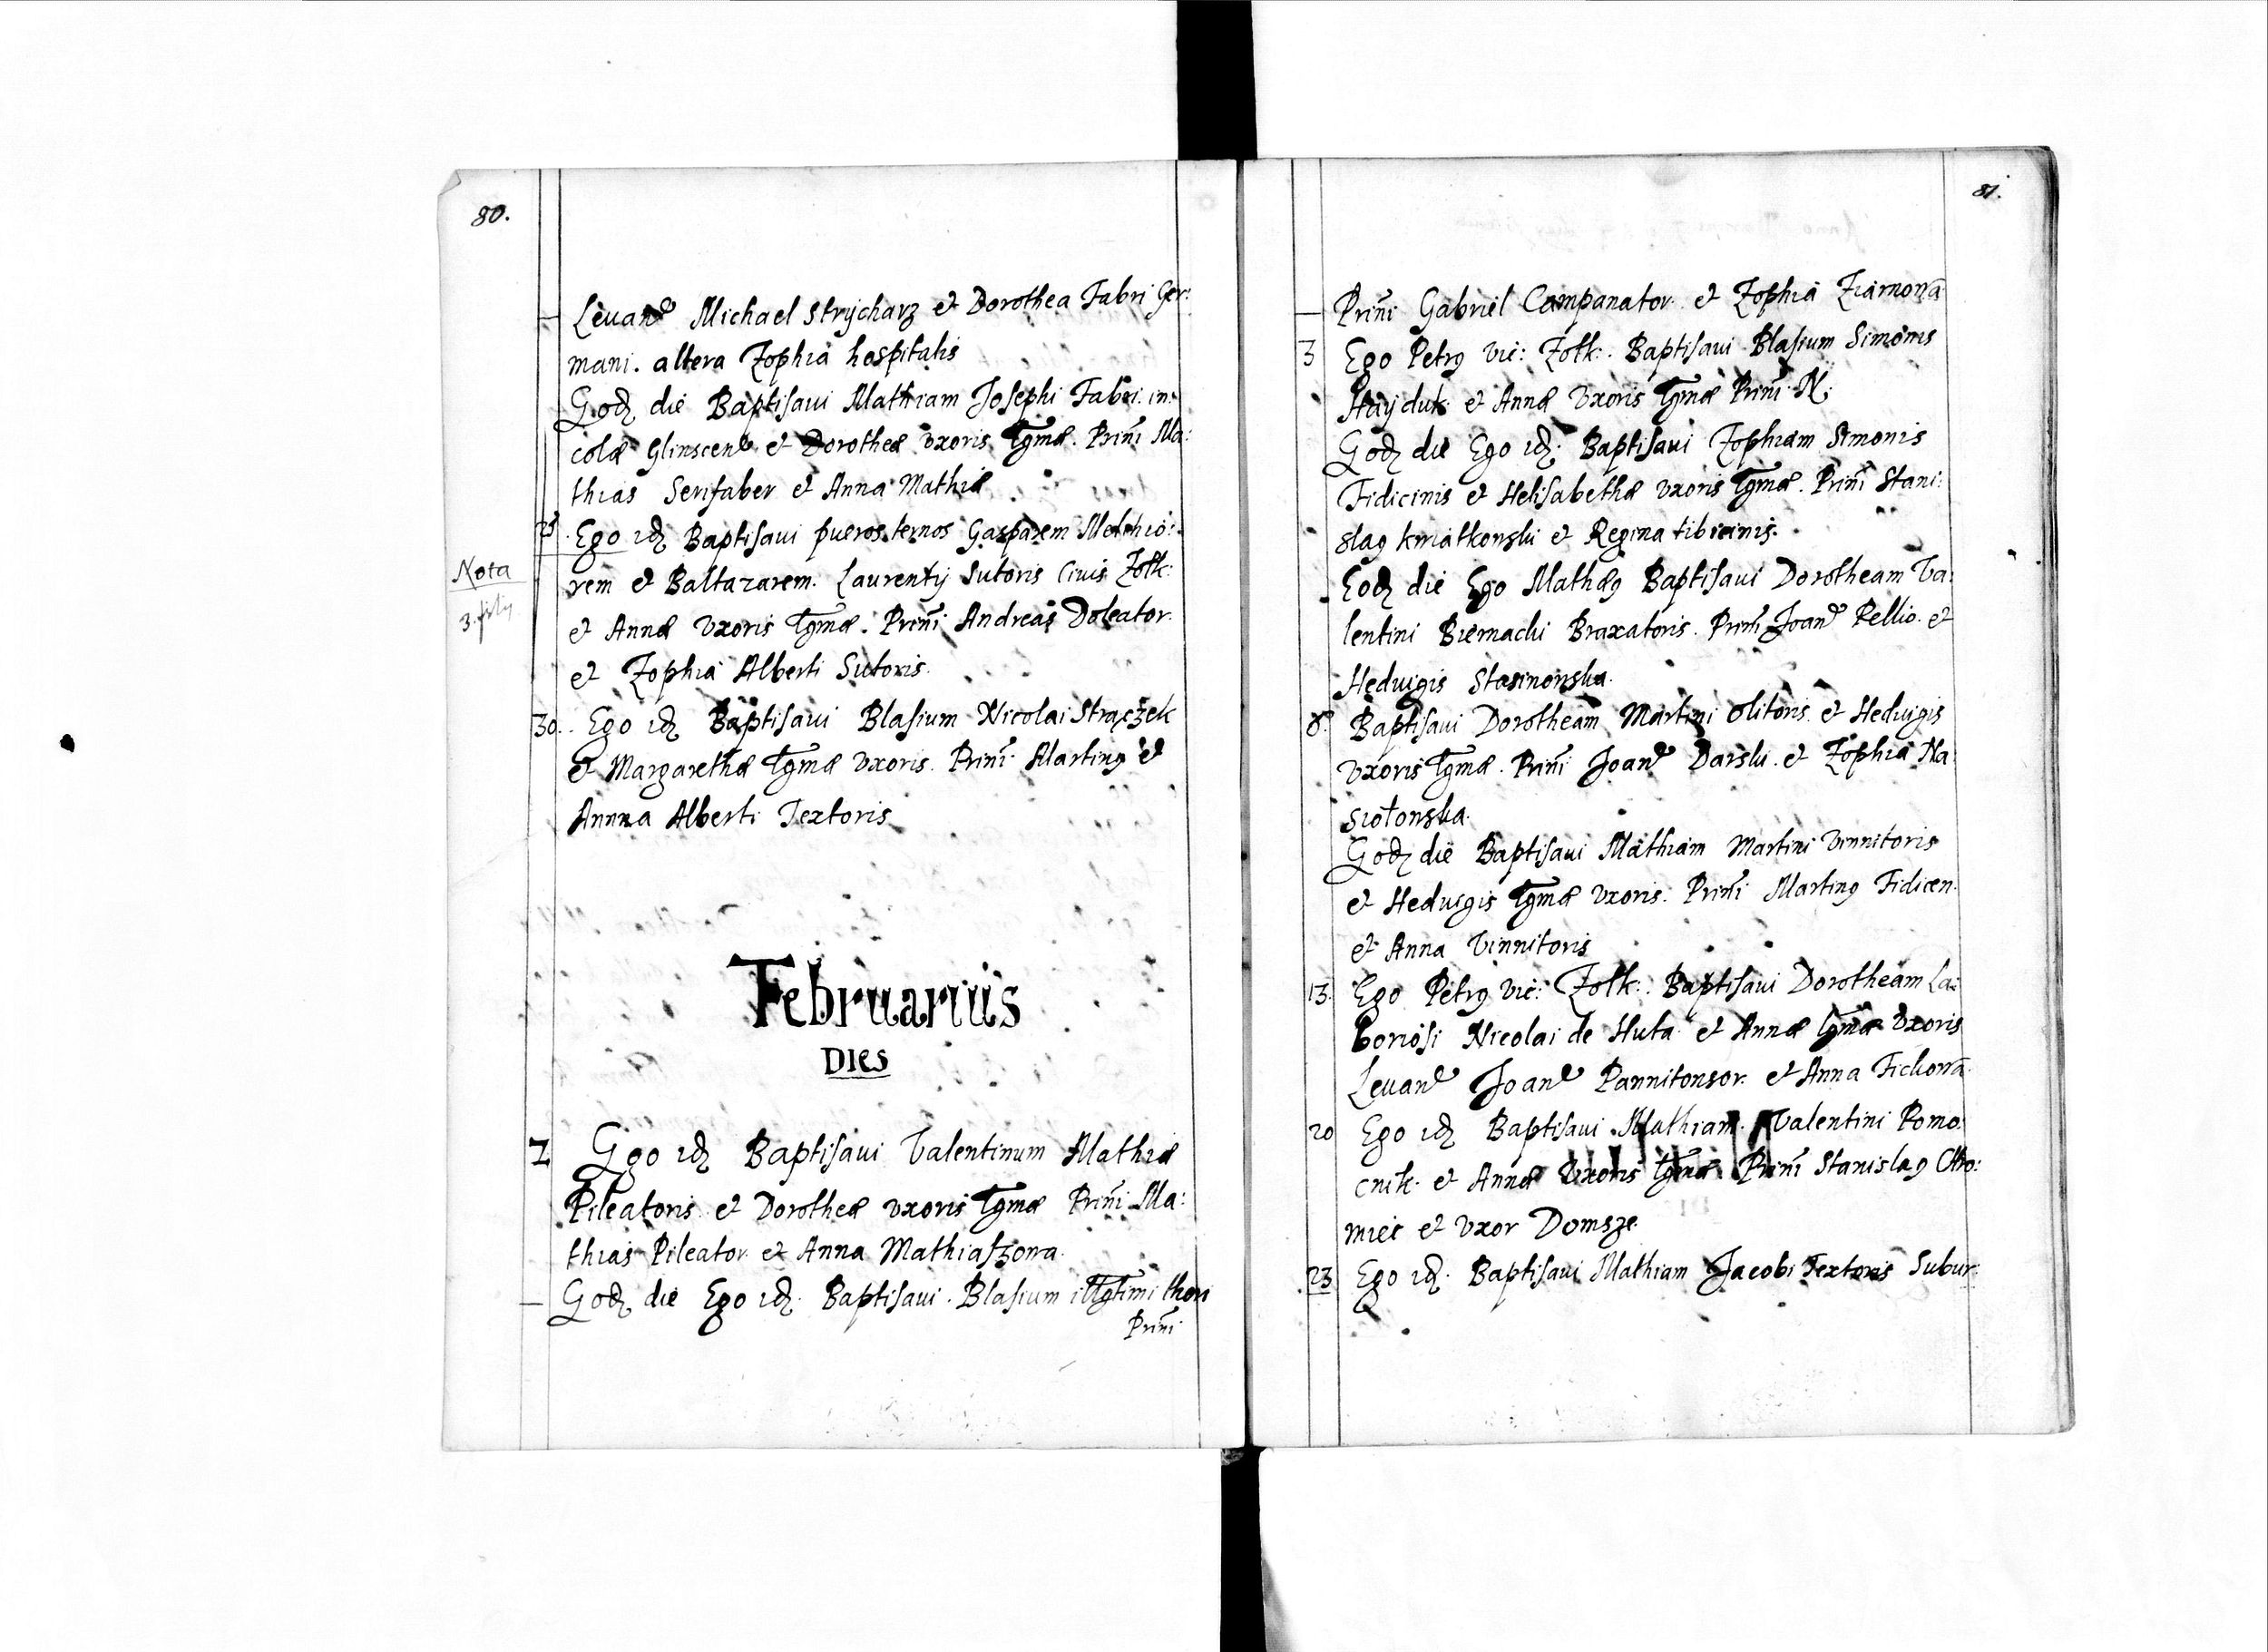 80.
Leuanꝭ Michael Strycharz et Dorothea Fabri Ger:
mani. altera Zophia hospitalis
Eodꝫ die Baptisaui Mathiam Josephi Fabri in:
colæ Glinscenꝭ et Dorotheæ uxoris lgmæ. Prīni Ma:
thias Serifaber et Anna Mathiæ
25. Ego idꝫ Baptisaui pueros ternos Gasparem Melchio:
Nota
rem et Baltazarem. Laurentij Sutoris Civis Zolk:
3. filij
et Annæ Uxoris lgmæ. Prīni Andreas Doleator.
et Zophia Alberti Sutoris.
30. Ego idꝫ Baptisaui Blasium Nicolai Strączek
et Margarethæ lgmæ uxoris. Prīni Martinꝰ et
Annna Alberti Textoris
Februarius
DIES
1 Ego idꝫ Baptisaui Valentinum Mathiæ
Pileatoris et Dorotheæ uxoris lgmæ Prīni Ma:
thias Pileator et Anna Mathiaszowa
Eodꝫ die Ego idꝫ Baptisaui Blasium illgtimi thori
Prīni
81.
Prīni Gabriel Campanator. et Zophia Ziarnowa
3 Ego Petrꝰ Vic: Zolk: Baptisaui Blasium Simonis
Hayduk et Annæ Uxoris lgmæ Prīni N:
Eodꝫ die Ego idꝫ Baptisaui Zophiam Simonis
Fidicinis et Helisabethæ uxoris lgmæ. Prīni Stani:
slaꝰ kwiatkowski et Regina tibicinis.
Eodꝫ die Ego Mathæꝰ Baptisaui Dorotheam Va:
lentini Biernacki Braxatoris. Prīni Joanꝭ Pellio. et
Hedvigis Stasinowska.
8. Baptisaui Dorotheam Martini Olitoris et Hedvigis
Uxoris lgmæ. Prīni Joanꝭ Darslu. et Zophia Na
siołowska.
Eodꝫ die Baptisaui Mathiam Martini Vinnitoris
et Hedvigis lgmæ uxoris. Prīni Martinꝰ Fidicen.
et Anna Vinnitoris
13. Ego Petrꝰ Vic: Zolk: Baptisaui Dorotheam La:
boriosi Nicolai de Huta et Annæ lgmæ Uxoris
Leuanꝭ Joanꝭ Pannitonsor. et Anna Fickowa
20 Ego idꝫ Baptisaui Mathiam Valentini Pomo:
cnik. et Annæ Uxoris lgmæ Prīni Stanislaꝰ
miec et Uxor Domsze.
23 Ego idꝫ Baptisaui Mathiam Jacobi Textoris Subur: